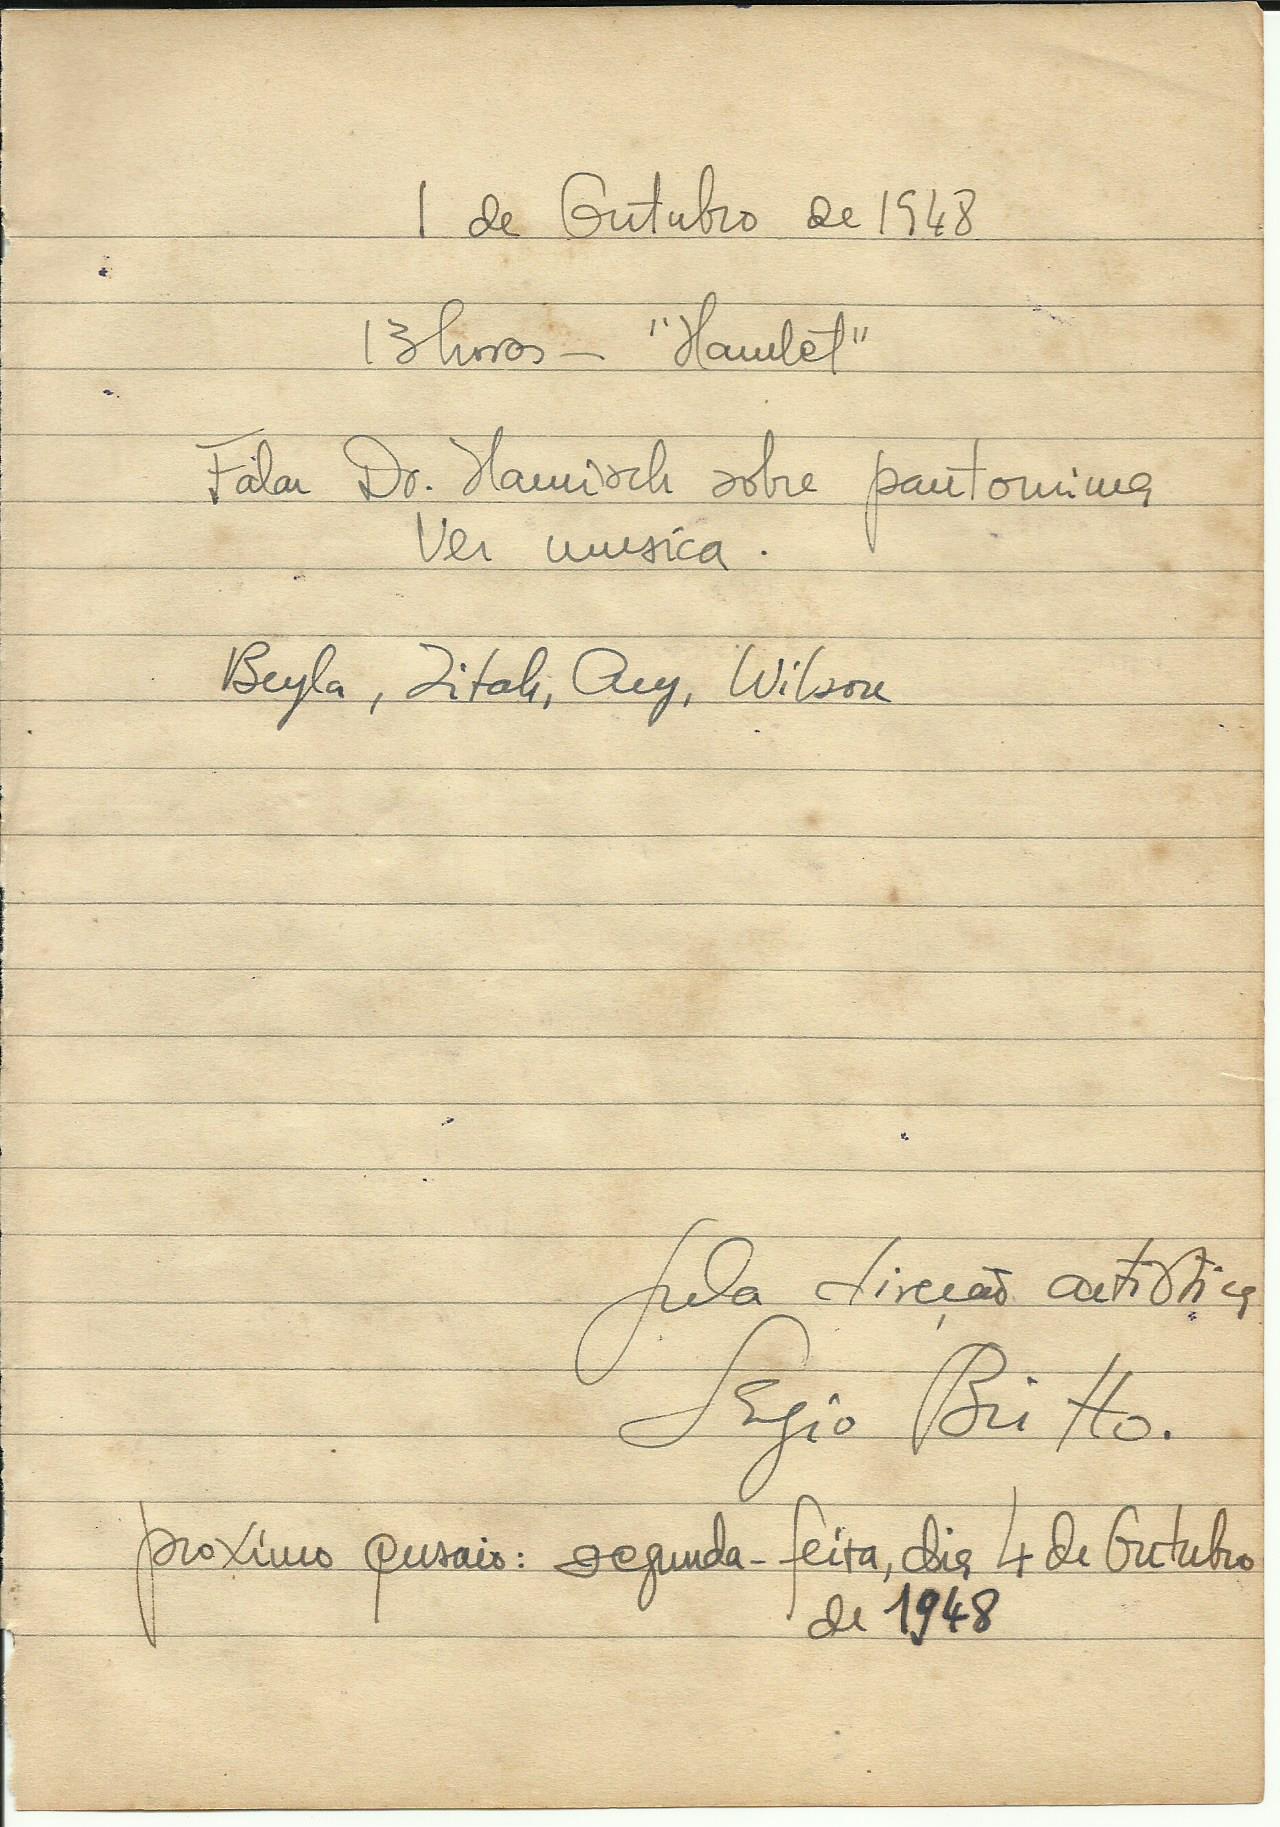 1 de Outubro de 1948
13 horas — "Hamlet"
Falar Dr. Hamisch sobre pantomima
Ver musica.
Beyla, Zitah, Ary, Wilson
pela direção artistica
Sergio Britto.
proximo ensaio: segunda-feira, dia 4 de Outubro
de 1948